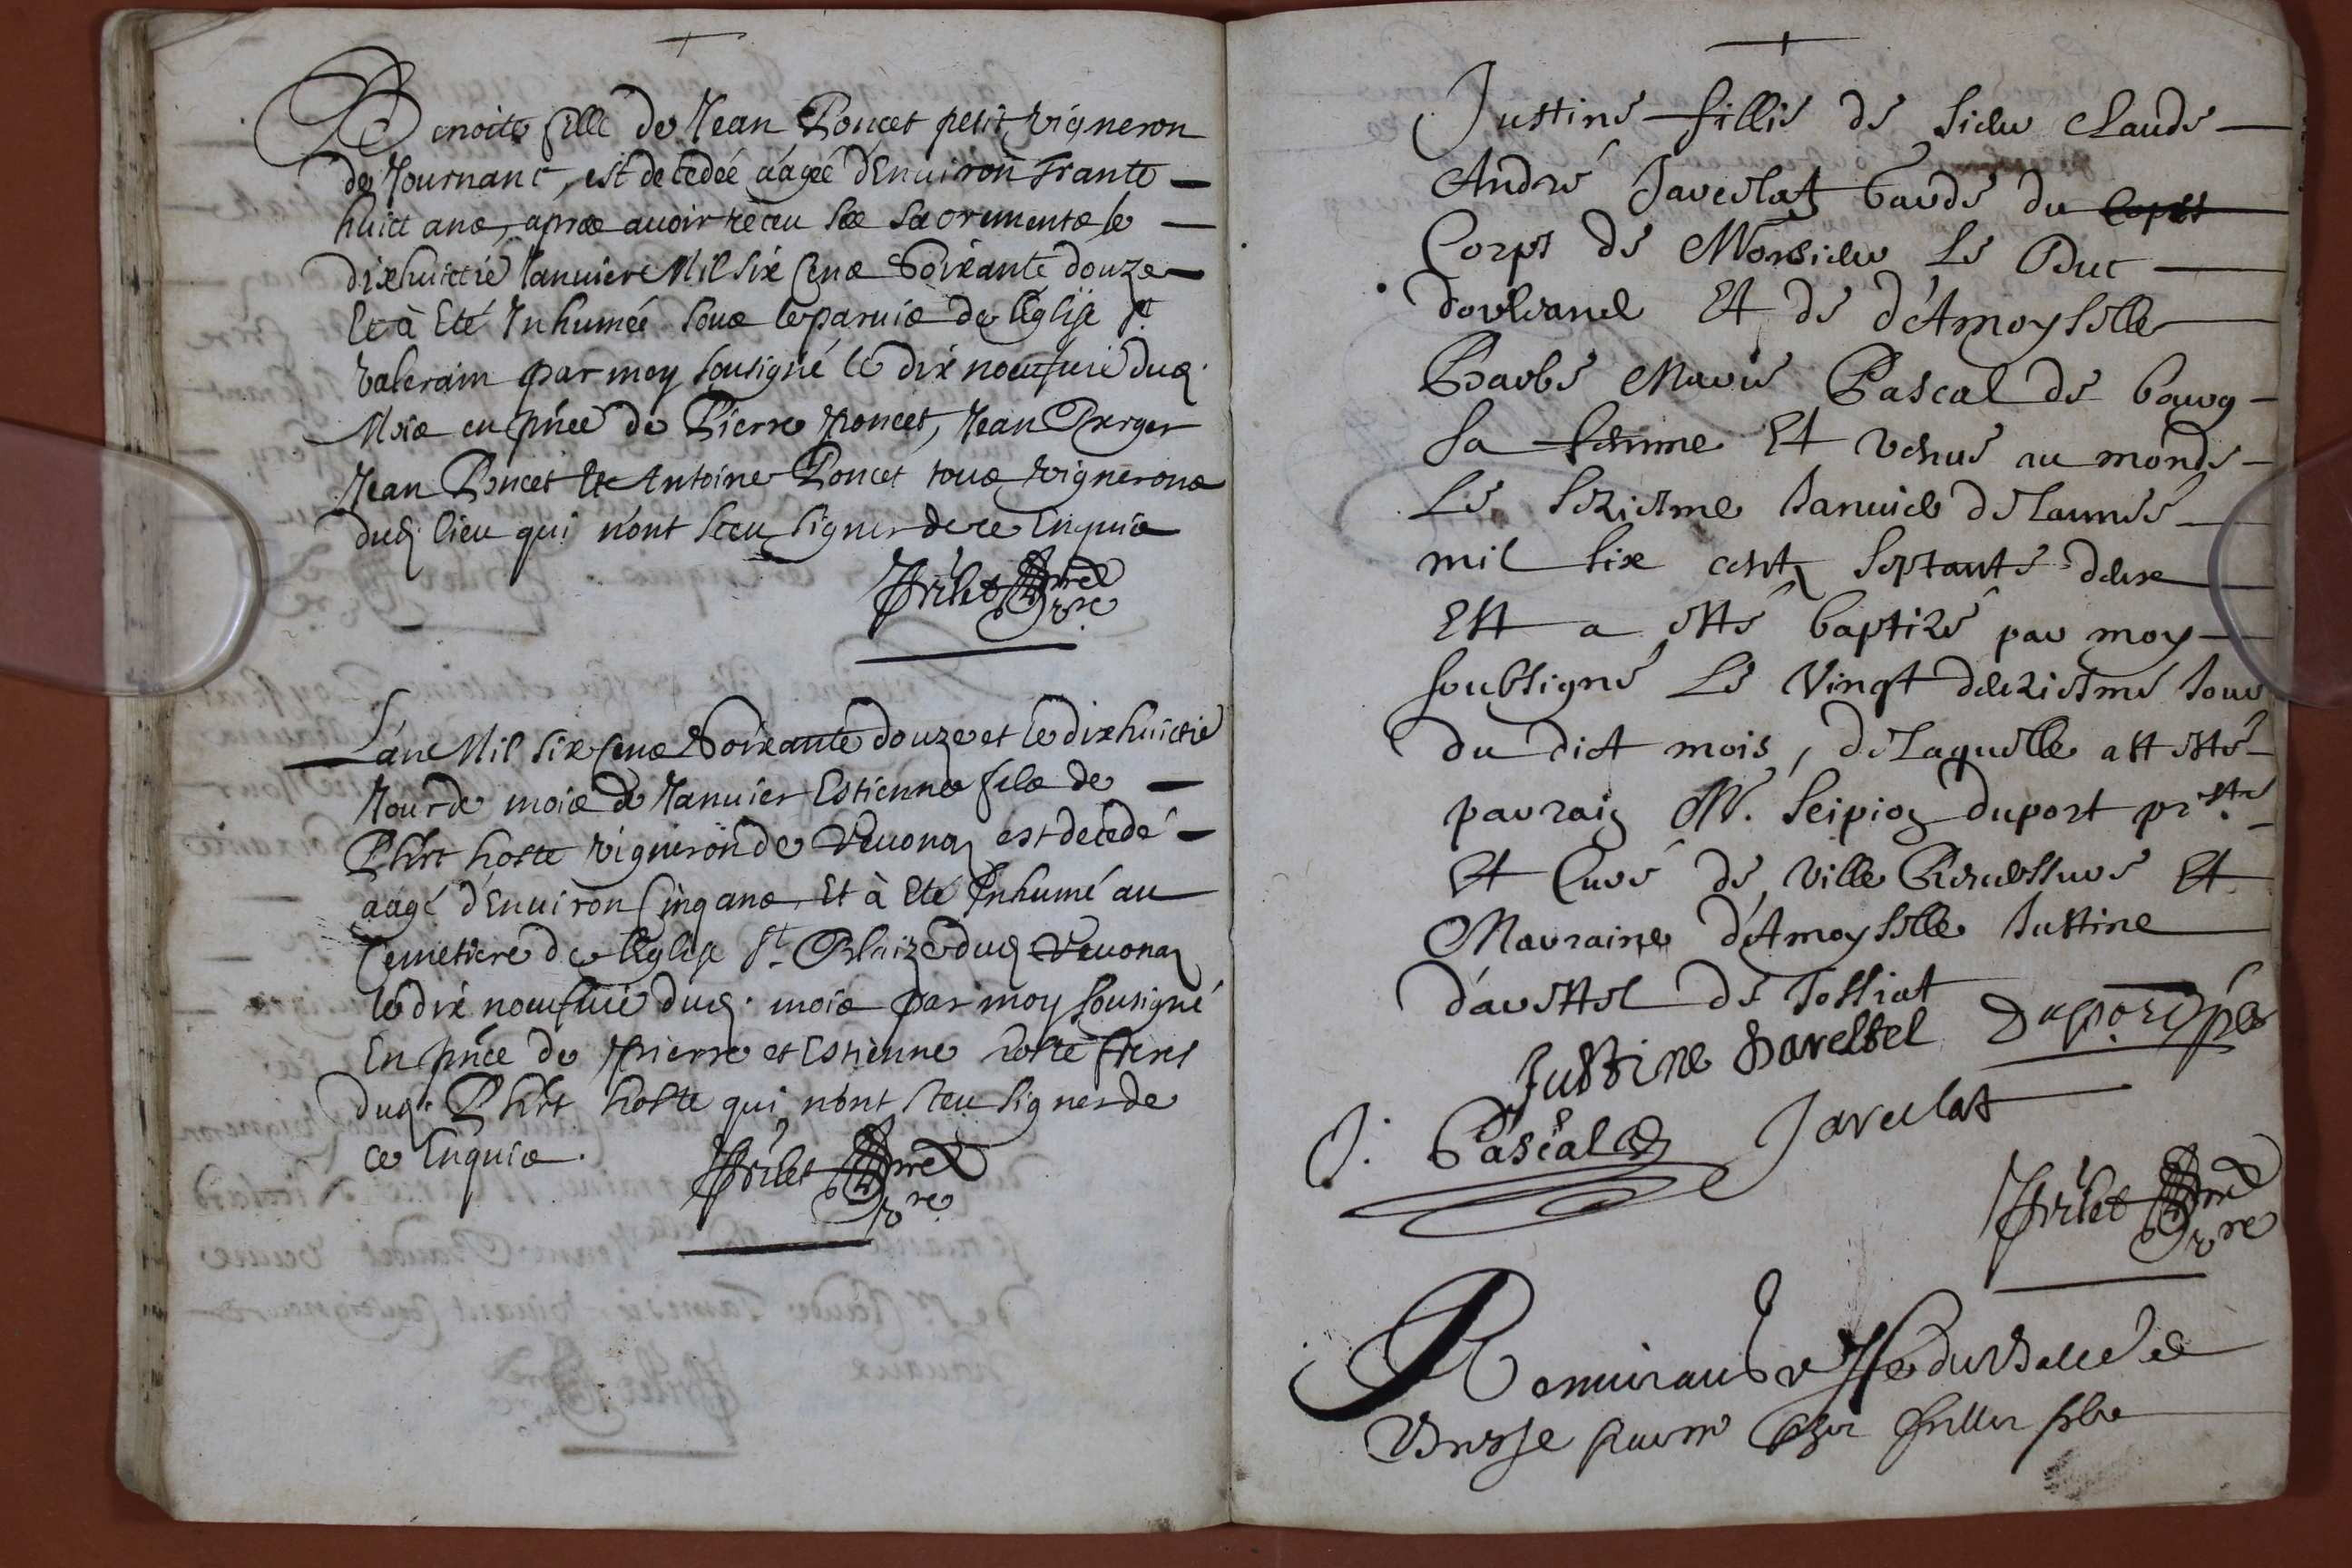 Benoite fille de Jean Poncet petit vigneron
de Journanc, est decedéé aâgéé d'Enuiron trante
huict ans, apres auoir receu ses sacrements le
dixhuictie Januier Mil six cens soixante douze
Et à Eté Inhumée sous le paruis de l'Eglise St
valerain par moy sousigné le dix noeufuie dud.
Mois en pnce de Pierre Poncet, Jean Berger
Jean Poncet Et Antoine Poncet tous vignerons
dud. lieu qui n'ont sceu signer de ce Enquis
L'an Mil six cens soixante douze et le dixhuictie
Jour de mois de Januier Estienne fils de
Phirt hoste vigneron de Veuona est decedé
aâgé d'Enuiron Cinq ans, Et à Eté Inhumé au
Cemetiere de l'Eglise St. Blaize dud Veuona
le dix noeufuie dud. mois par moy sousigné
En pnce de Pierre et Estienne hoste freres
dud. Phirt hoste qui n'ont sceu signer de
ce Enquis.
Justine fillie de sieur Claude
André Javerlat garde du corps
Corps de Monsieur Le Duc
dorleans Et de d'Amoyselle
Barbe Marie Pascal de bourg
sa femme Et venue au monde
Le seziesme Januier de Lannée
mil six cent septante deux
Est a esté baptizé par moy
soubsigné Le Vingt deuziesme Jour
du dict mois, de Laquelle a esté
parrain M. Scipion duport prstre
Et Curé de Ville Reuersure Et
Marraine d'Amoyselle Justine
d'arestel de Jossiat
Justine Darestel Duport
J. Pascal Javerlat